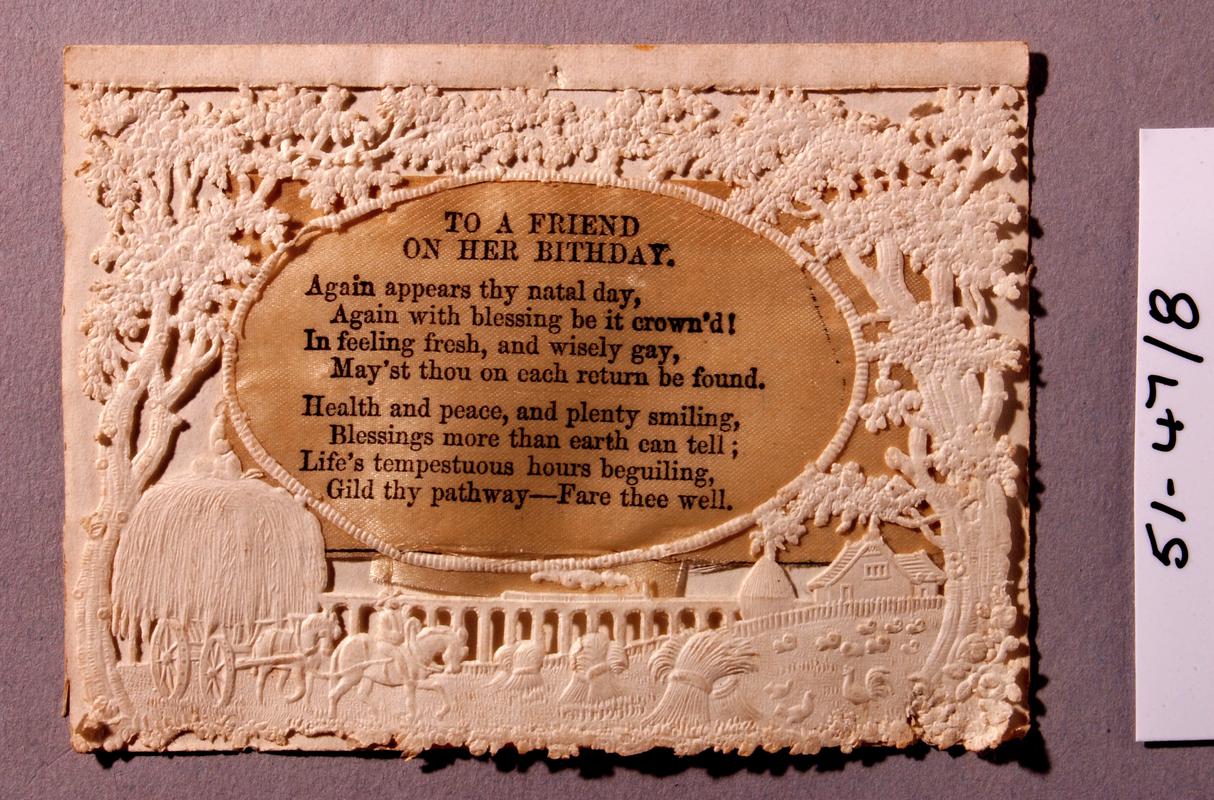 TO A FRIEND
ON HER BITHDAY.
Again appears thy natal day,
Again with blessing be it crown'd!
In feeling fresh, and wisely gay,
May'st thou on each return be found.
Health and peace, and plenty smiling,
Blessings more than earth can tell;
Life's tempestuous hours beguiling,
Gild thy pathway—Fare thee well.
51-47/8